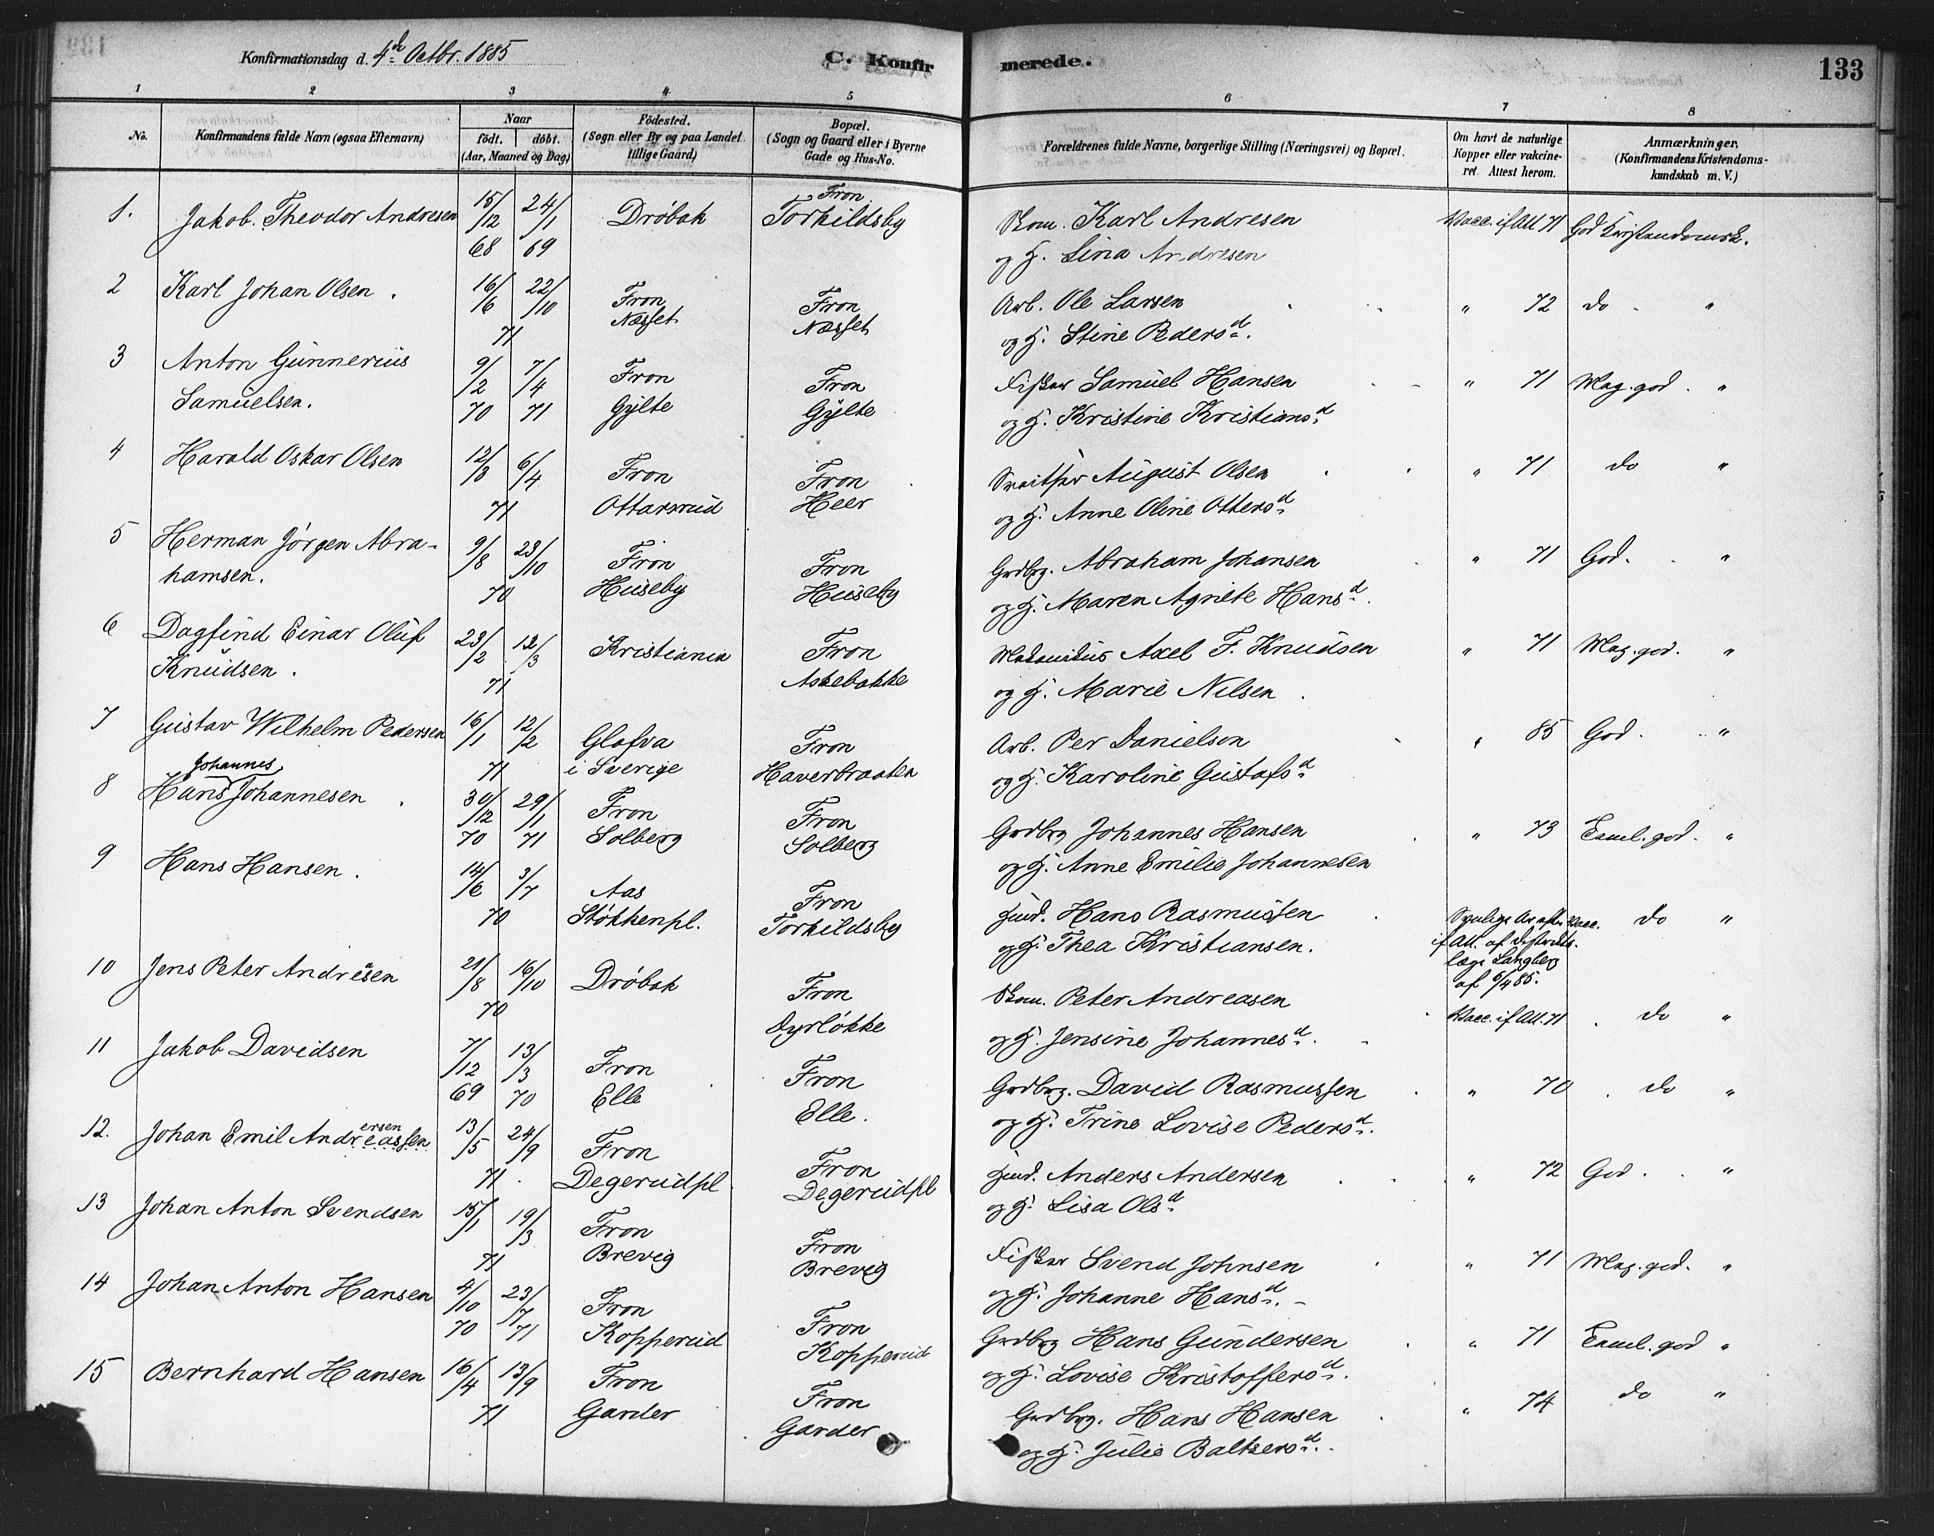 Konfirmationsdag d. 4de Octbr. 1885
C. Konfirmerede.
133
1 2 3 4 5 6 7 8
No.
Konfirmandens fulde Navn (ogsaa Efternavn)
Naar
födt. döbt.
(Aar, Maaned og Dag)
Födested.
(Sogn eller By og paa Landet tillige Gaard)
Bopæl.
(Sogn og Gaard eller i Byerne Gade og Hus-No.
Forældrenes fulde Navne, borgerlige Stilling (Næringsvei) og Bopæl.
Om havt de naturlige Kopper eller vakcineret. Attest herom.
Anmærkninger.
(Konfirmandens Kristendomskundskab m. V.)
1. Jakob Theodor Andresen 15/12 68 24/1 69 Dröbak Fron Torkildsby
Skom. Karl Andresen
og H. Lina Andresen
Vacc. if Att 71 God Kristendomsk.
2 Karl Johan Olsen. 16/6 22/10 71 Fron Næsset Fron Næsset
Arb. Ole Larsen
og H. Stine Pedersd.
" 72 do "
3 Anton Gunnerius Samuelsen. 9/2 70 7/4 71 Fron Gylte Fron Gylte
Fisker Samuel Hansen
og H. Kristine Kristiansd
" 71 Mag. god. "
4 Harald Oskar Olsen 12/3 6/4 71 Fron Ottarsrud Fron Heer
August Olsen
og H. Anne Oline Ottersd
" 71 do "
5 Herman Jörgen Abrahamsen. 9/8 23/10 70 Fron Huseby Fron Huseby
Grdbrg. Abraham Johansen
og H. Maren Agnete Hansd.
" 71 God. "
6 Dagfind Einar Oluf Knudsen. 23/2 12/3 71 Kristiania Fron Askebakke
Axel F. Knudsen
og H. Marie Nilsen
" 71 Mag. god. "
7 Gustav Wilhelm Pedersen 16/1 12/2 71 Glafva i Sverige Fron Haverbraaten
Arb. Per Danielson
og H. Karoline Gustafsd
" 85 God. "
8 Hans Johannes Johannesen 30/12 70 29/1 71 Fron Solberg Fron Solberg
Grdbrg Johannes Hansen
og H. Anne Emilie Johannesen
" 73 Taml. god. "
9 Hans Hansen. 14/6 3/7 70 Aas Stökkenpl. Fron Torkildsby
Hans Rasmussen
og H. Thea Kristiansen.
Synlige Ar efter Vacc. if Att. af Distriktslæge Langberg af 6/4 85. do "
10 Jens Peter Andresen 21/8 16/10 70 Dröbak Fron Dyrlökke
Skom. Peter Andreasen
og H. Jensine Johannesd.
Vacc. if Att. 71 do "
11 Jakob Davidsen 7/12 69 13/3 70 Fron Elle Fron Elle.
Grdbrg. David Rasmussen
og H. Trine Lovise Pedersd.
" 70 do "
12. Johan Emil Andreassen ersen 13/5 24/9 71 Fron Degerudpl. Fron Degerudpl
Anders Andersen
og H. Lisa Olsd
" 72 God. "
13 Johan Anton Svendsen 15/1 19/3 71 Fron Brevig Fron Brevig
Fisker Svend Johnsen
og H. Johanne Hansd.
" 71 Mag. god. "
14 Johan Anton Hansen 4/10 70 23/7 71 Fron Kopperud Fron Kopperud
Grdbrg Hans Gundersen
og H. Lovise Kristoffersd.
" 71 Taml. god "
15 Bernhard Hansen 16/4 13/9 71 Fron Garder Fron Garder
Grdbrg. Hans Hansen
og H. Julie Baltsersd.
" 74 do "